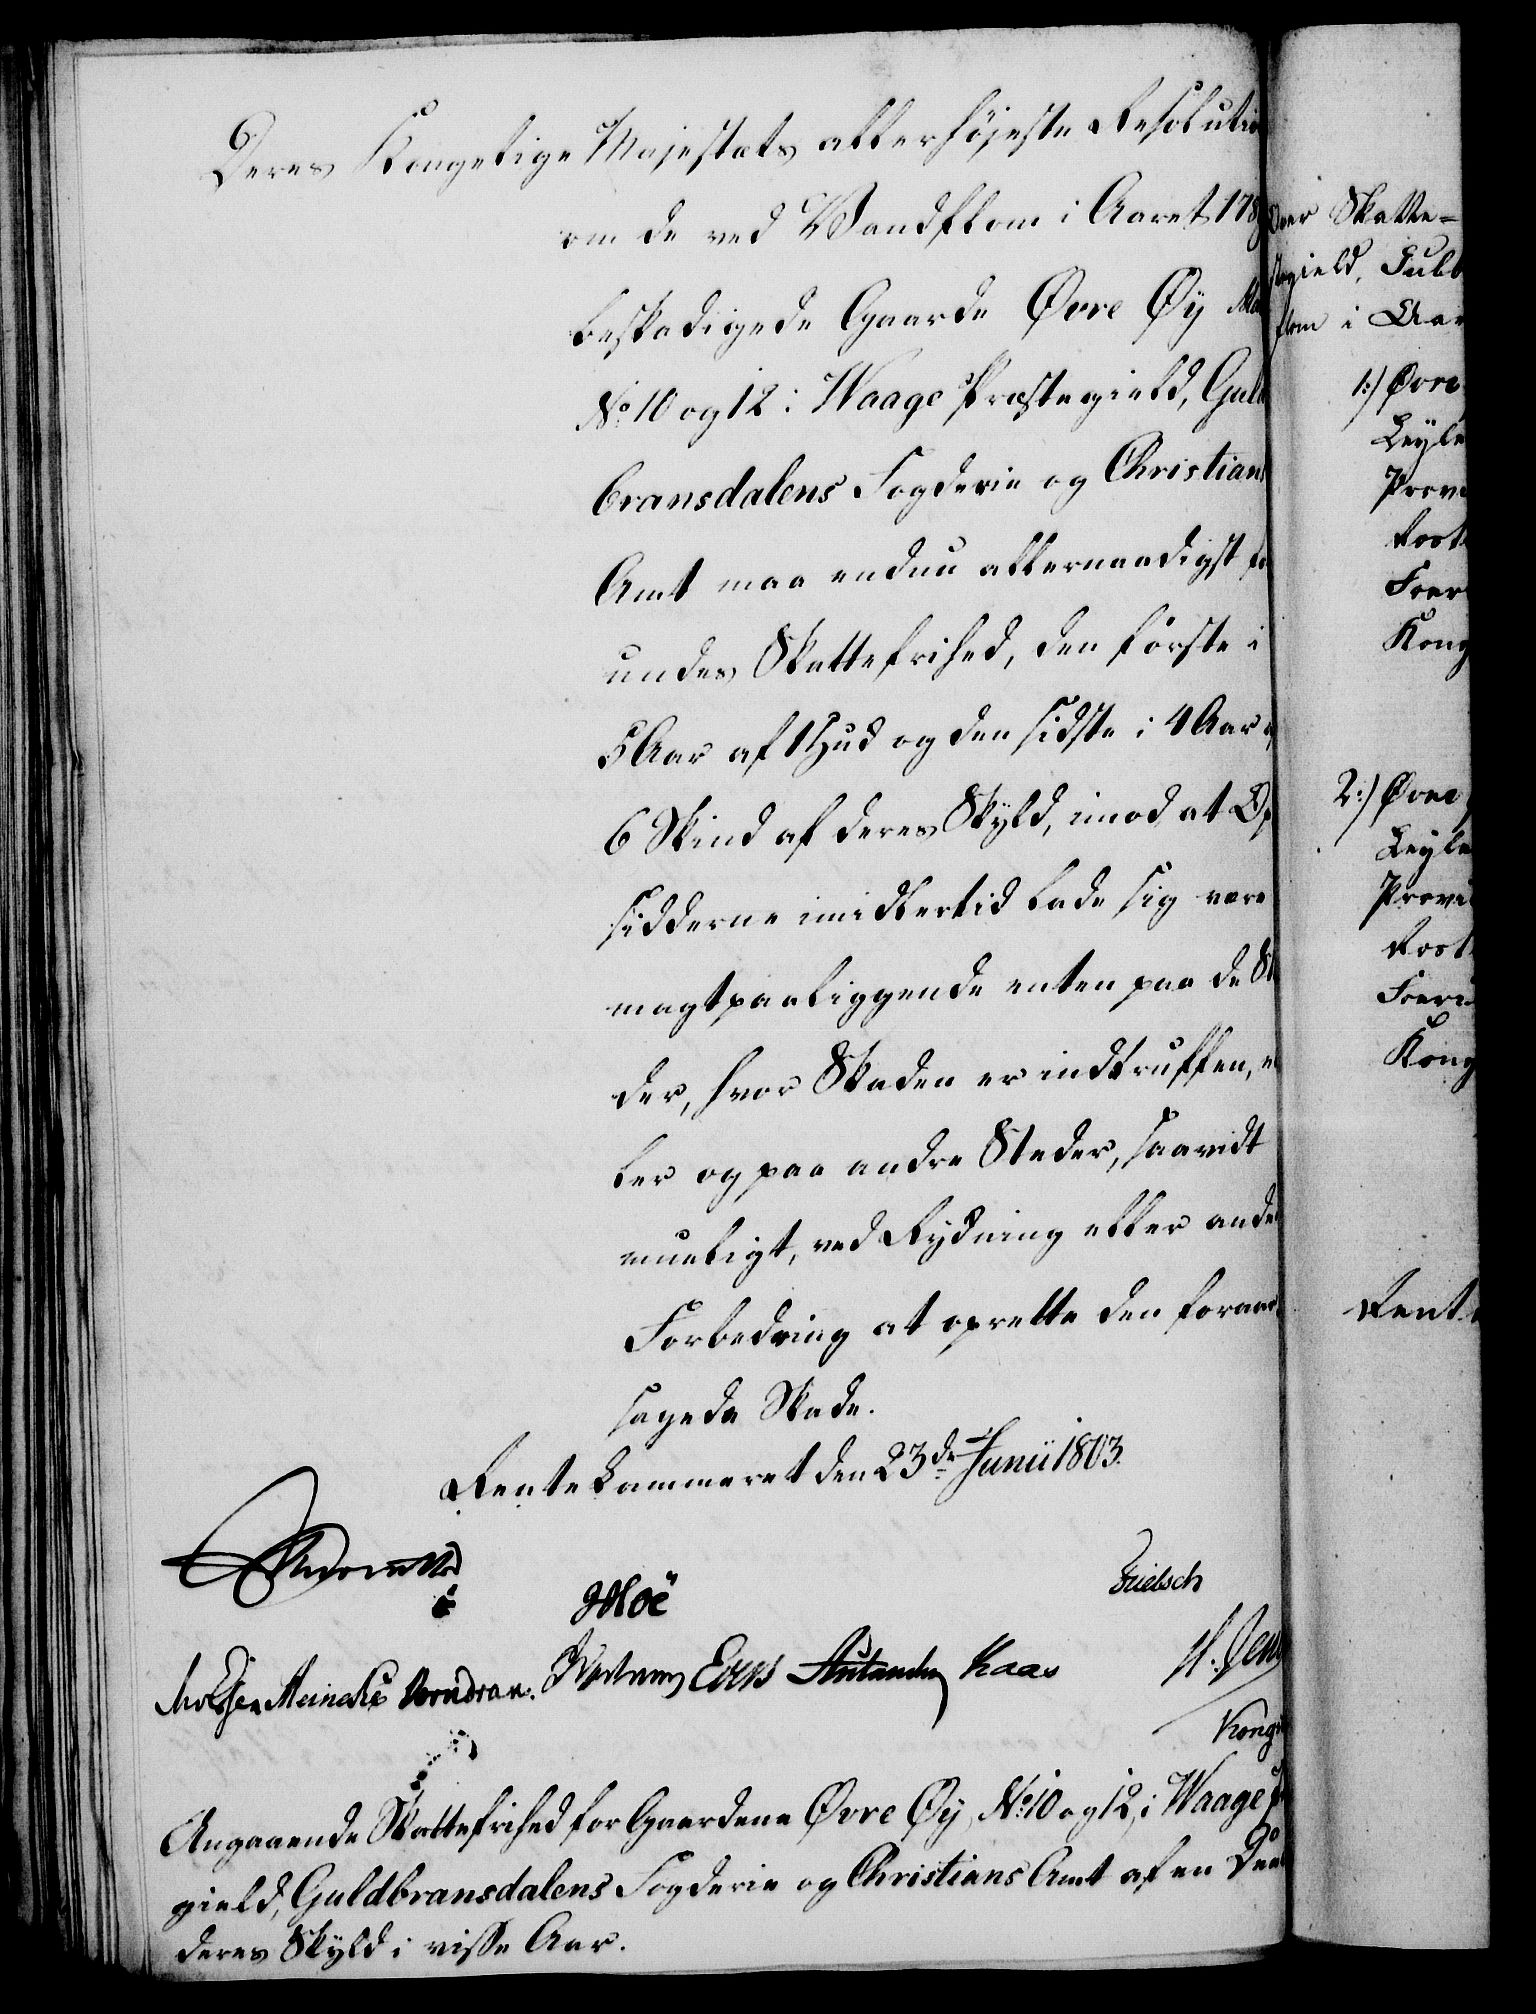 Deres Kongelige Majestæts allerhøjeste Resolutio
om de ved Vandflom i Aaret 1789
beskadigede Gaarde Øvre Øy Ma
No 10 og 12 i Waage Præstegield, Guld
bransdalens Fogderie og Christians
Amt maa endnu allernaadigst for
undes Skattefrihed, den første i
5 Aar af 1 Hud og den sidste i 4 Aar af
6 Skind af deres Skyld, imod at Op
sidderne imidlertid lade sig være
magtpaaliggende enten paa de Ste
der, hvor Skaden er indtruffen, el
ler og paa andre Steder, saavidt
mueligt, ved Rydning eller anden
Forbedring at oprette den foraar
sagede Skade.
Rentekammeret den 23de Junii 1803.
Moë
Meinche Verndran. Evers Kaas
Kong
Angaaende Skattefrihed for Gaardene Øvre Øy, No 10 og 12, i Waage Pr
gield, Guldbransdalens Fogderie og Christians Amt af en Deel
deres Skyld i visse Aar.
over Skatte=
stegield, Gulb
flom i Aar
1:) Øvre
Leyle
Provi
Rost
Foer
Kong
2:) Øvre
Leyle
Provi
Rost
Foer
Kong
Rente